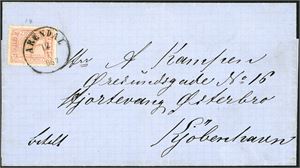 ARENDAL
Hr. A Kampen
Øresundsgade No 16
Hjortevang Østerbro
Kjöbenhavn
betalt